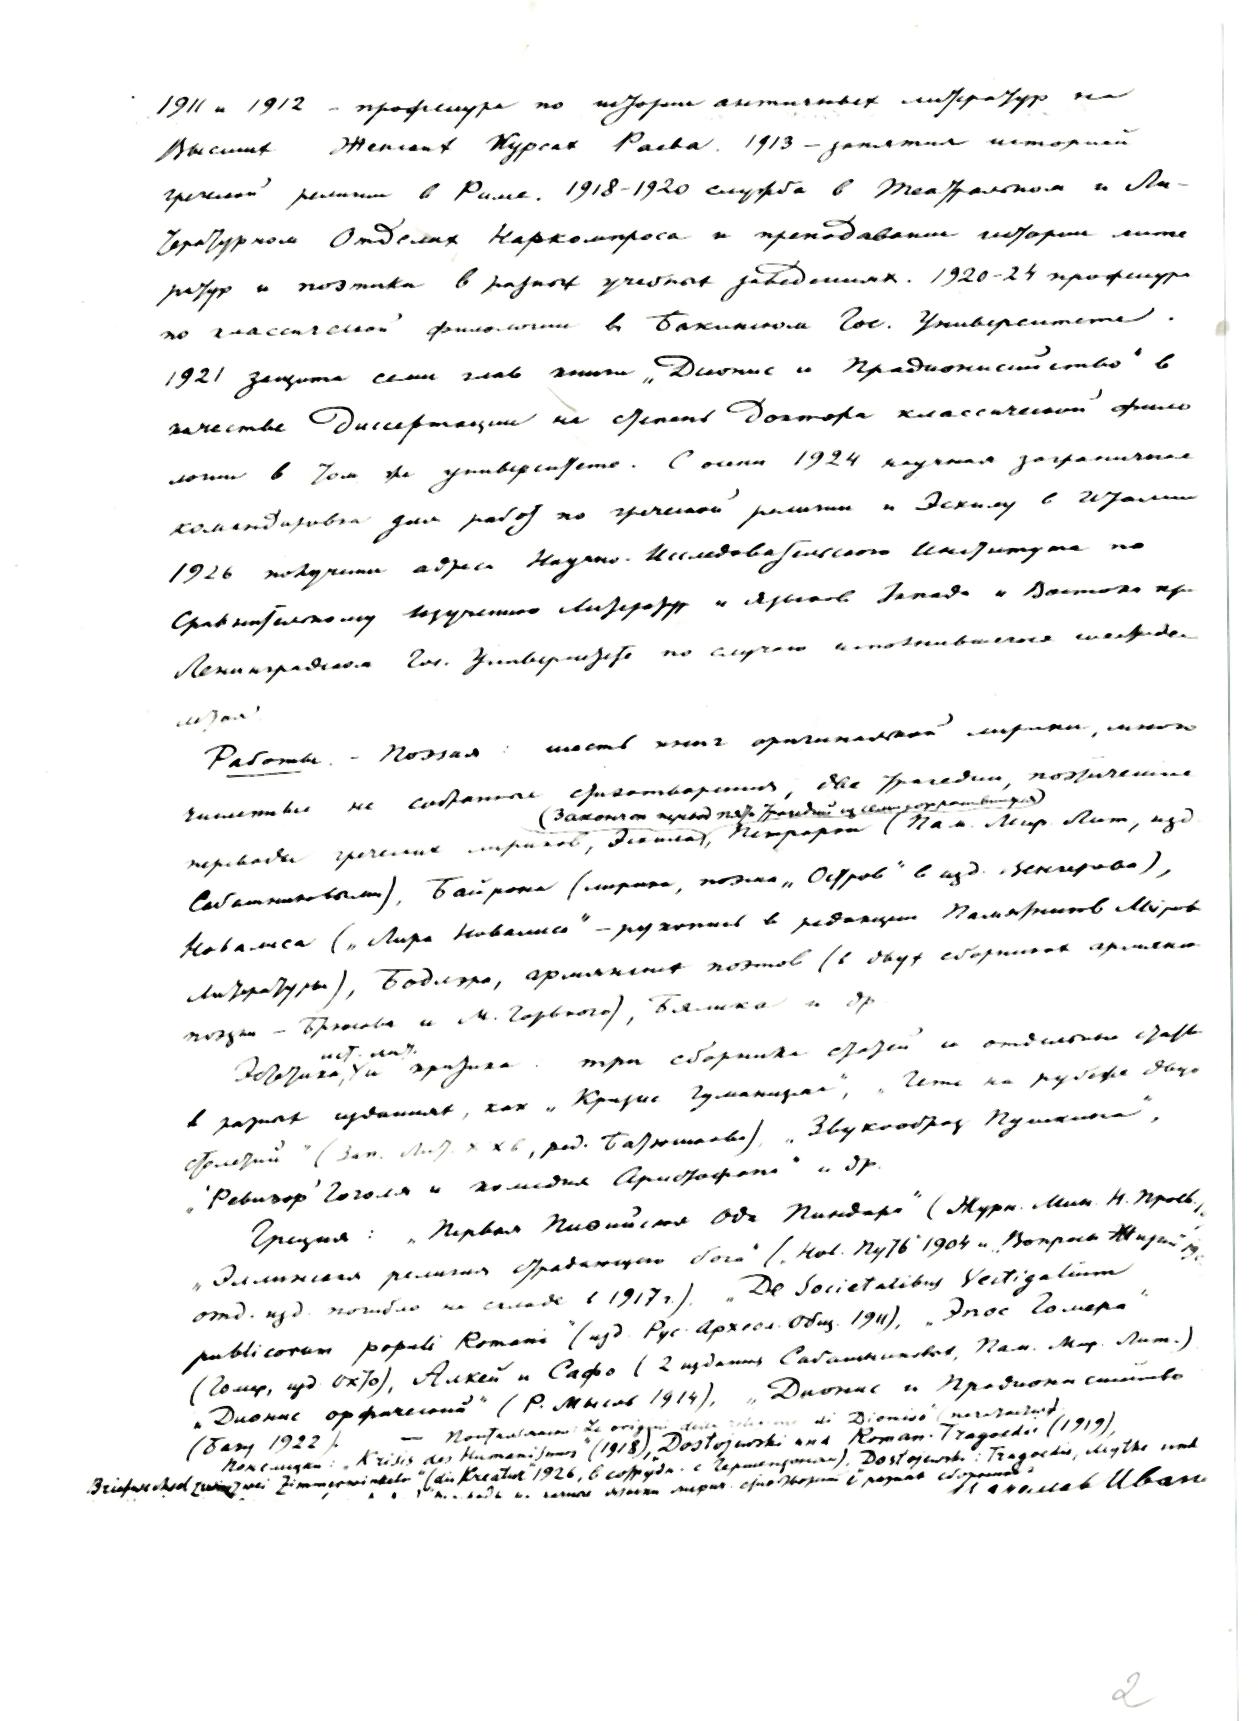 1911 и 1912 – профессура по истории античных литератур на
Высших Женских Курсах Раева. 1913 – занятия историей
греческой религии в Риме. 1918-1920 служба в Театральном и Ли-
тературном Отделах Наркомпроса и преподавание истории лите
ратур и поэтики в разных учебных заведениях. 1920-24 профессура
по классической филологии в Бакинском Гос. Университете.
1921 защита семи глав книги „Дионис и Прадионисийство" в
качестве диссертации на степень Доктора классической фило
логии в том же университете. С осени 1924 научная заграничная
командировка для работ по греческой религии и Эсхилу в Италии
1926 получении адреса Научно-Исследовательского Института по
Сравнительному изучению Литератур и языков Запада и Востока при
Ленинградском Гос. Университете по случаю исполнившегося шестидеся
летия.
Работы. – Поэзия: шесть книг оригинальной лирики, много
численные не собранные стихотворения, две трагедии, поэтические
(Закончен перевод пяти трагедий из семи сохранившихся)
переводы греческих лириков, Эсхила, Петрарки (Пам. Мир. Лит., изд
Сабашниковых), Байрона (лирика, поэма „Остров" в изд. Венгерова),
Новалиса („Лира Новалиса" – рукопись в редакции Памятников Миров
Литературы), Бодлэра, армянских поэтов (в двух сборниках армянс
поэзии – Брюсова и М. Горького), Бялика и др
ист. лит.
Эстетика, и критика: три сборника статей и отдельные стать
в разных изданиях, как „Кризис Гуманизма", „Гете на рубеже двух
столетий" (Зап. Лит. XX в, ред. Батюшкова), „Звукообраз Пушкина",
„'Ревизор' Гоголя и комедия Аристофана" и др.
Греция: „Первая Пифийская Ода Пиндара" (Журн. Мин. Н. Просв.
„Эллинская религия страдающего бога" („Нов. Путь" 1904 и „Вопросы Жизни"
отд. изд. погибло на складе в 1917 г.). „De Societatibus Vectigalium
publicorum populi Romani" (изд. Рус. Археол. Общ. 1911), „Эпос Гомера"
(Гомер, изд Окто), Алкей и Сафо (2 издания Сабашниковых, Пам. Мир. Лит.)
„Дионис орфический" (Р. Мысль 1914), „Дионис и Прадионисийство
(Баку 1922). – di Dioniso"
„Krisis des Humanismus" (1918), Dostojewski und Roman-Tragoedie (1919),
Briefwechsel zwischen zwei Zimmerwinkeln" (die Kreatur 1926, в сотрудн. с Гершензоном), Dostojewski: Tragoedie, Mythe und
Вячеслав Иван
2